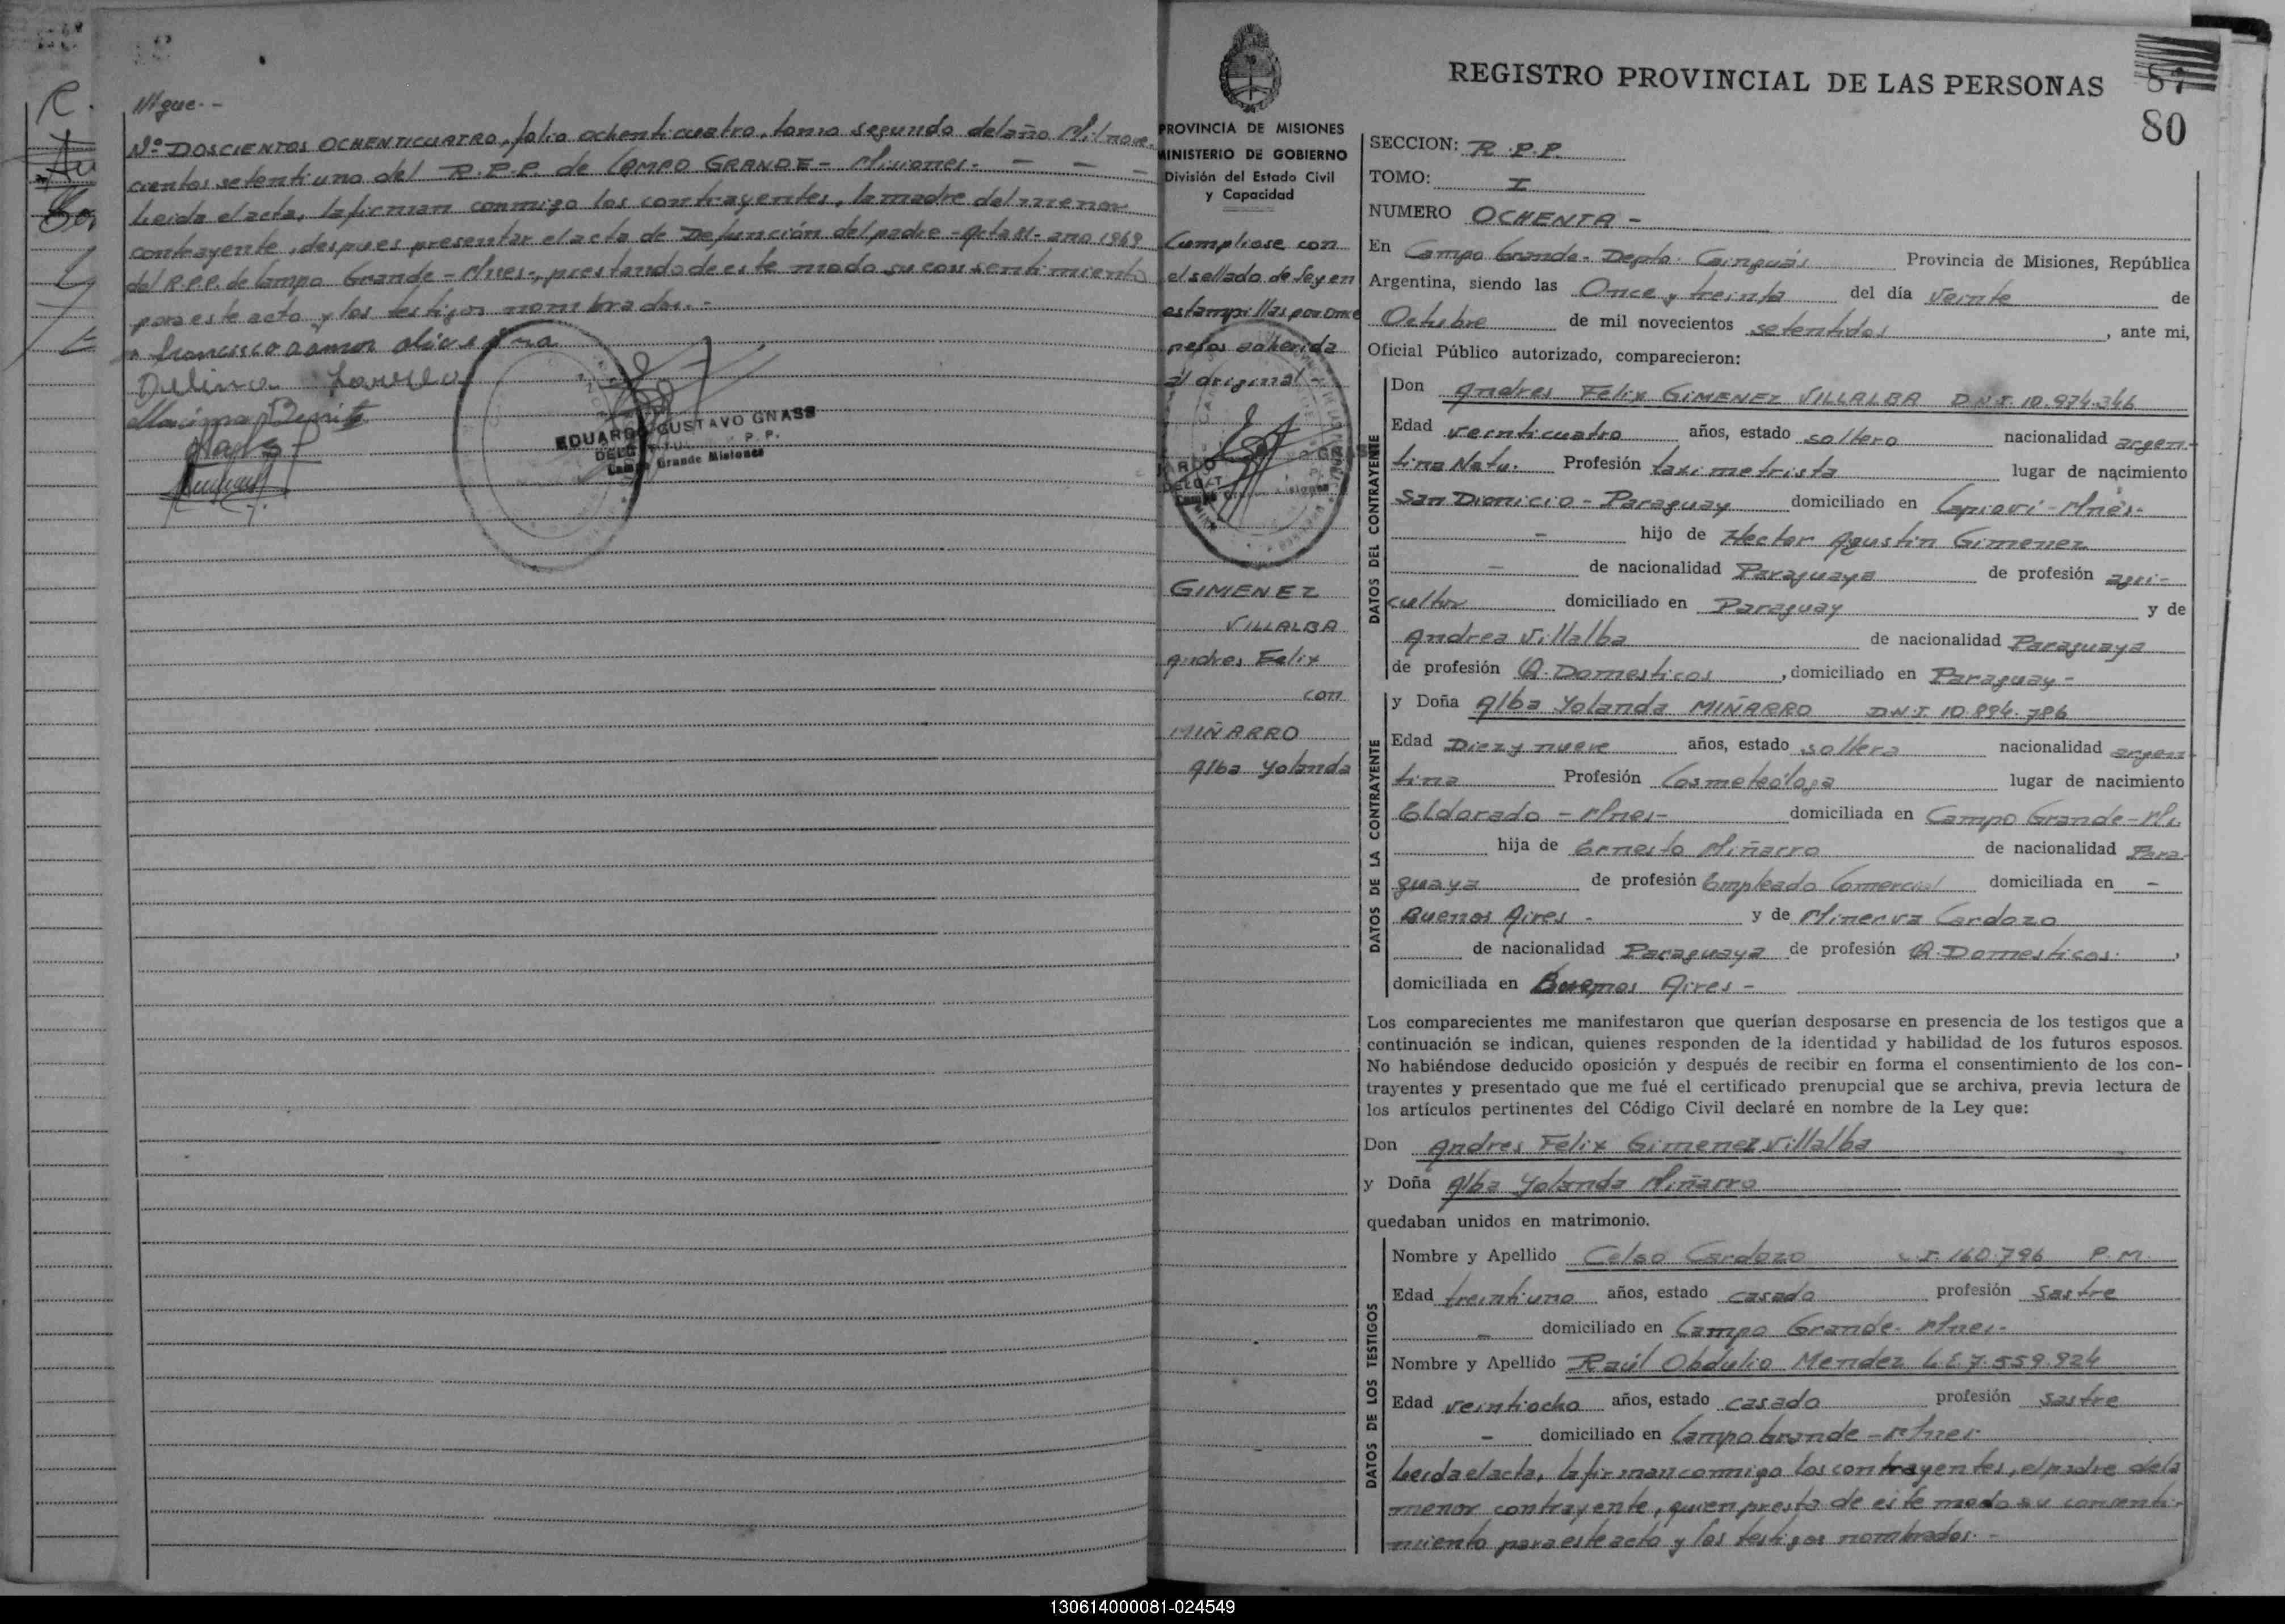 ///gue.-
Nº DOSCIENTOS OCHENTICUATRO, folio ochenticuatro, tomo segundo del año Mil nove-
cientos setentiuno del R.P.P. de CAMPO GRANDE - Misiones. - - -
Leida el acta, la firman conmigo los contrayentes, la madre del menor
contrayente, despues presentar el acta de Defunción del padre - Acta 81 - año 1969
del R.P.P. de Campo Grande - Mnes-, prestando de este modo su consentimiento
para este acto y los testigos nombrados.-
francisco ramon
Delina
EDUARDO GUSTAVO GNASS
P. P.
Campo Grande Misiones
PROVINCIA DE MISIONES
MINISTERIO DE GOBIERNO
División del Estado Civil
y Capacidad
Cumpliose con
el sellado de ley en
estampillas por once
pesos adherida
al original -
GIMENEZ
VILLALBA
Andres Felix
con
MIÑARRO
Alba Yolanda
REGISTRO PROVINCIAL DE LAS PERSONAS
87
80
SECCION: R.P.P.
TOMO: I
NUMERO OCHENTA -
En Campo Grande - Depto. Cainguás Provincia de Misiones, República
Argentina, siendo las Once y treinta del día veinte de
Octubre de mil novecientos setentidos, ante mi,
Oficial Público autorizado, comparecieron:
DATOS DEL CONTRAYENTE
Don Andres Felix GIMENEZ VILLALBA D.N.I. 10.974.346
Edad veinticuatro años, estado soltero nacionalidad argen-
tina Natu. Profesión taximetrista lugar de nacimiento
San Dionicio - Paraguay domiciliado en Capioví - Mnes-
- hijo de Hector Agustin Gimenez
- de nacionalidad Paraguaya de profesión agri-
cultor domiciliado en Paraguay y de
Andrea Villalba de nacionalidad Paraguaya
de profesión Q. Domesticos, domiciliado en Paraguay -
DATOS DE LA CONTRAYENTE
y Doña Alba Yolanda MIÑARRO D.N.I. 10.894.786
Edad Diez y nueve años, estado soltera nacionalidad argen-
tina Profesión Cosmeteóloga lugar de nacimiento
Eldorado - Mnes- domiciliada en Campo Grande - Ms.
hija de Ernesto Miñarro de nacionalidad Para-
guaya de profesión Empleado Comercial domiciliada en -
Buenos Aires - y de Minerva Cardozo
de nacionalidad Paraguaya de profesión Q. Domesticos.,
domiciliada en Buenos Aires -
Los comparecientes me manifestaron que querían desposarse en presencia de los testigos que a
continuación se indican, quienes responden de la identidad y habilidad de los futuros esposos.
No habiéndose deducido oposición y después de recibir en forma el consentimiento de los con-
trayentes y presentado que me fué el certificado prenupcial que se archiva, previa lectura de
los artículos pertinentes del Código Civil declaré en nombre de la Ley que:
Don Andres Felix Gimenez Villalba
y Doña Alba Yolanda Miñarro
quedaban unidos en matrimonio.
DATOS DE LOS TESTIGOS
Nombre y Apellido Celso Cardozo C.I. 160.796 P.M.
Edad treintiuno años, estado casado profesión Sastre
- domiciliado en Campo Grande - Mnes-
Nombre y Apellido Raúl Obdulio Mendez L.E. 7.559.924
Edad veintiocho años, estado casado profesión sastre
- domiciliado en Campo Grande - Mnes-
Leida el acta, la firman conmigo los contrayentes, el padre de la
menor contrayente, quien presta de este modo su consenti-
miento para este acto y los testigos nombrados.-
130614000081-024549